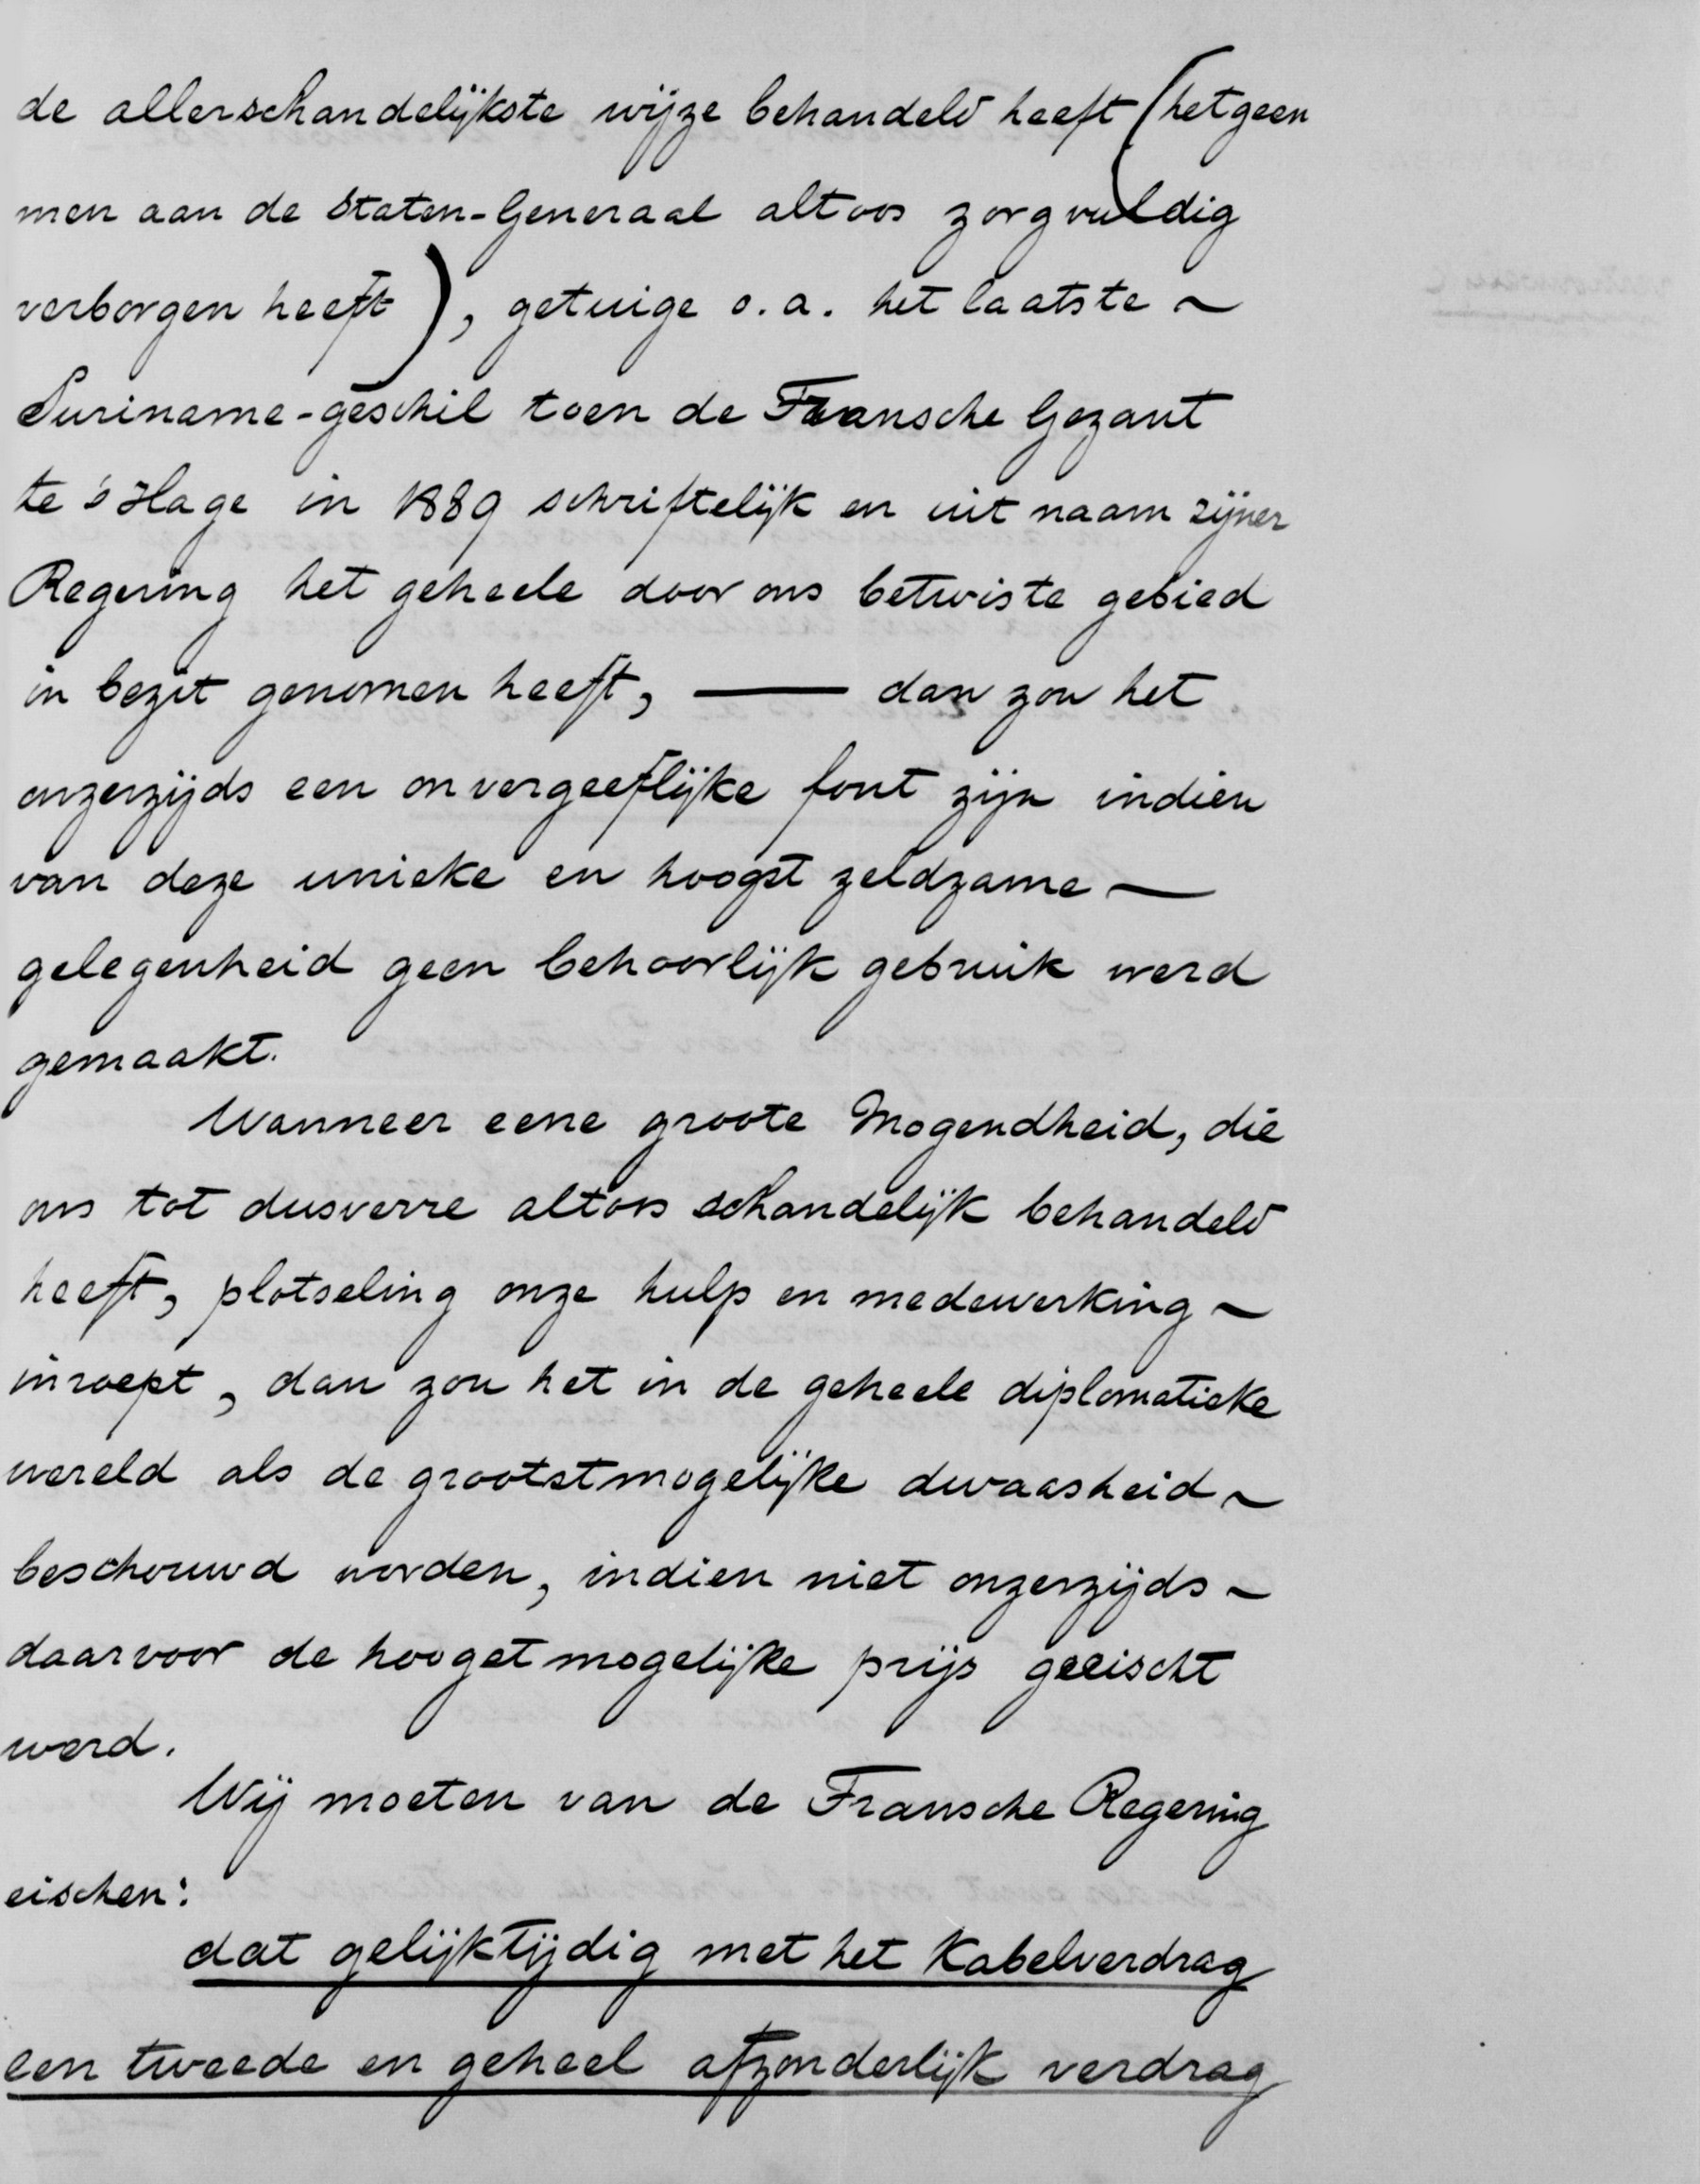 de allerschandelijkste wijze behandeld heeft (hetgeen
men aan de Staten-Generaal altoos zorgvuldig
verborgen heeft), getuige o.a. het laatste ~
Suriname-geschil toen de Fransche Gezant
te 's Hage in 1889 schriftelijk en uit naam zijner
Regering het geheele door ons betwiste gebied
in bezit genomen heeft, — dan zou het
onzerzijds een onvergeeflijke fout zijn indien
van deze unieke en hoogst zeldzame —
gelegenheid geen behoorlijk gebruik werd
gemaakt.
Wanneer eene groote Mogendheid, die
ons tot dusverre altoos schandelijk behandeld
heeft, plotseling onze hulp en medewerking ~
inroept, dan zou het in de geheele diplomatieke
wereld als de grootstmogelijke dwaasheid ~
beschouwd worden, indien niet onzerzijds ~
daarvoor de hoogstmogelijke prijs geeischt
werd.
Wij moeten van de Fransche Regering
eischen:
dat gelijktijdig met het Kabelverdrag
een tweede en geheel afzonderlijk verdrag